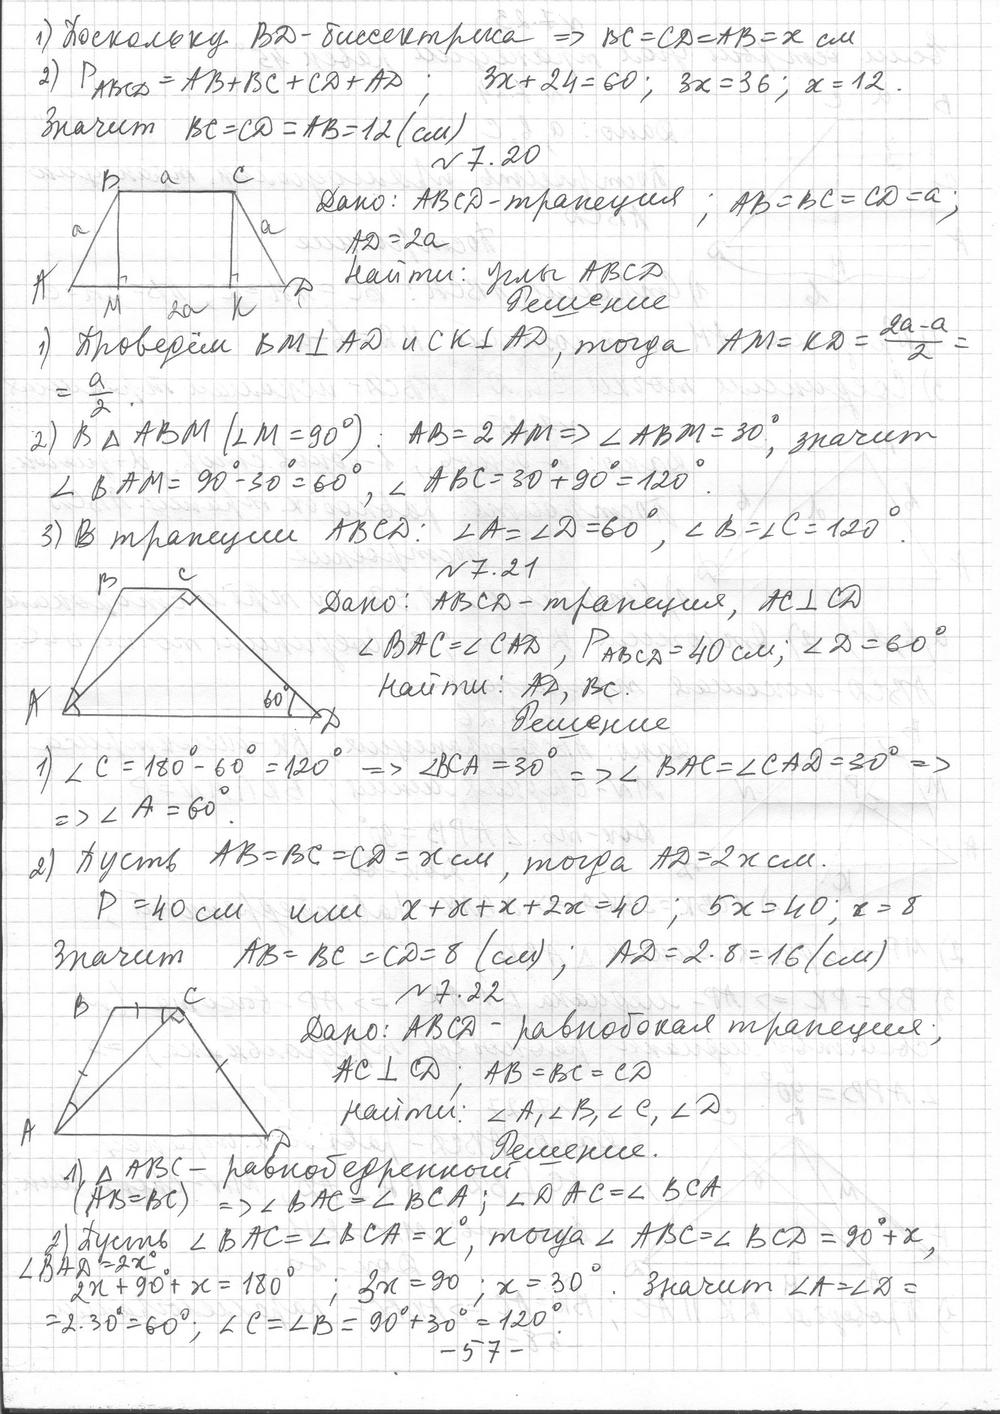 1) Поскольку BD-биссектриса => BC=CD=AB=x см
2) P_ABCD = AB+BC+CD+AD; 3x+24=60; 3x=36; x=12.
Значит BC=CD=AB=12(см)
№7.20
B a C
a a
A M 2a K D
Дано: ABCD-трапеция; AB=BC=CD=a;
AD=2a
Найти: углы ABCD
Решение
1) Проведём BM⊥AD и CK⊥AD, тогда AM=KD=(2a-a)/2=
=a/2.
2) В △ABM (∠M=90°): AB=2AM=>∠ABM=30°, значит
∠BAM=90°-30°=60°, ∠ABC=30°+90°=120°.
3) В трапеции ABCD: ∠A=∠D=60°, ∠B=∠C=120°.
№7.21
B C
A 60° D
Дано: ABCD-трапеция, AC⊥CD
∠BAC=∠CAD, P_ABCD=40см; ∠D=60°
Найти: AD, BC.
Решение
1) ∠C=180°-60°=120° =>∠BCA=30° =>∠BAC=∠CAD=30° =>
=>∠A=60°.
2) Пусть AB=BC=CD=x см, тогда AD=2x см.
P=40 см или x+x+x+2x=40; 5x=40; x=8
Значит AB=BC=CD=8 (см); AD=2·8=16(см)
№7.22
B C
A D
Дано: ABCD-равнобокая трапеция;
AC⊥CD; AB=BC=CD
Найти: ∠A,∠B,∠C,∠D
Решение.
1) △ABC-равнобедренный
(AB=BC) =>∠BAC=∠BCA; ∠DAC=∠BCA
2) Пусть ∠BAC=∠BCA=x°, тогда ∠ABC=∠BCD=90°+x,
∠BAD=2x°
2x+90°+x=180°; 3x=90; x=30°. Значит ∠A=∠D=
=2·30°=60°; ∠C=∠B=90°+30°=120°.
-57-